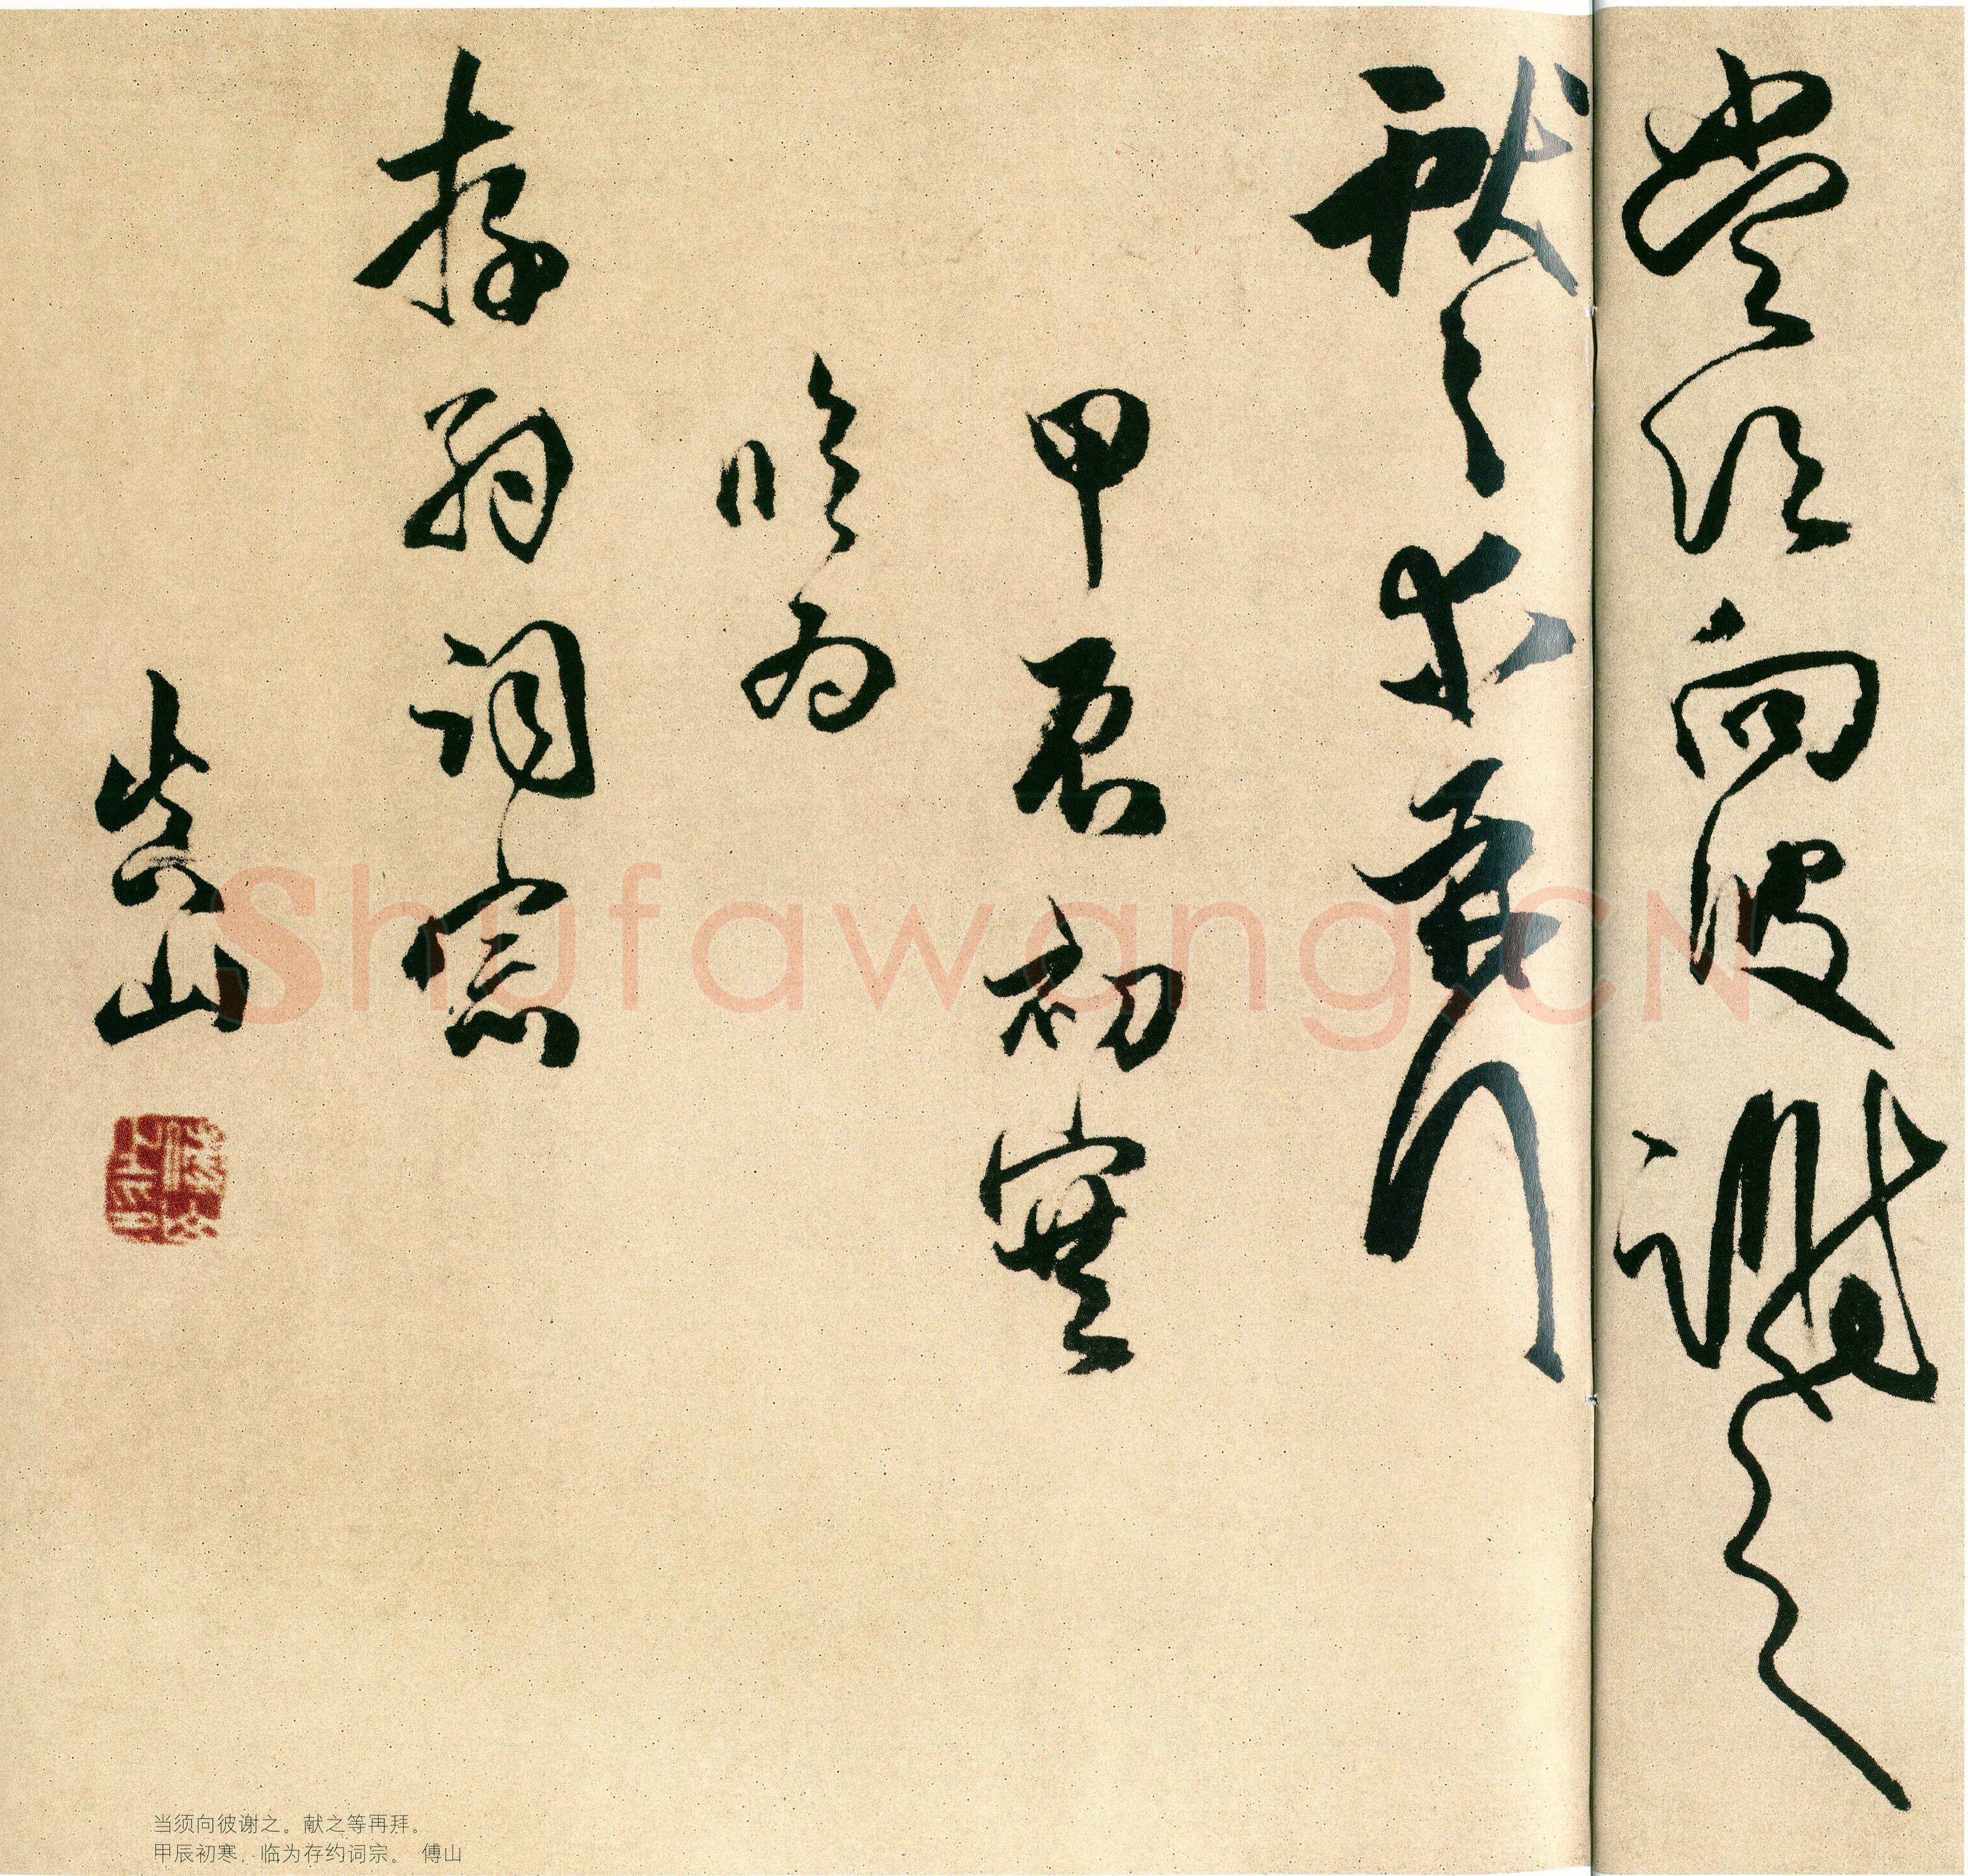 當須向彼謝之
獻之等再拜
甲辰初寒
臨為
存約詞宗
真山
Shufawang.CN
当须向彼谢之。献之等再拜。
甲辰初寒，临为存约词宗。 傅山